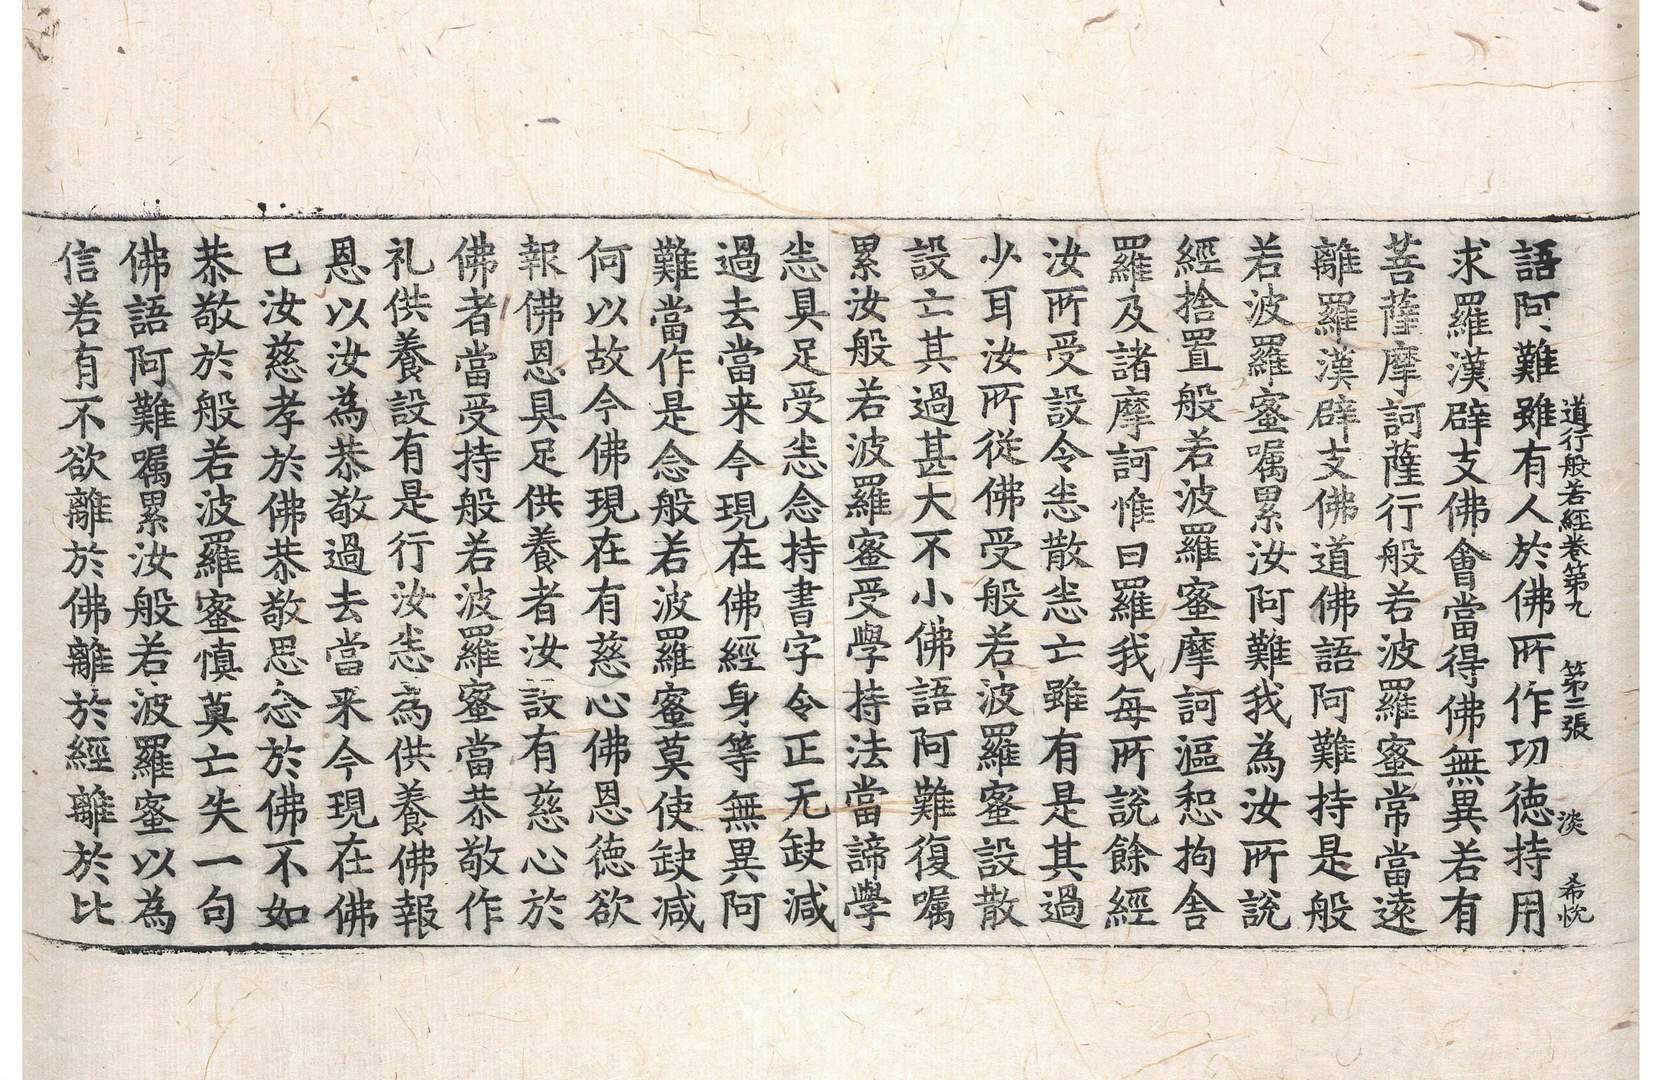 道行般若經卷第九 第二張 淡 希悅
語阿難雖有人於佛所作功德持用
求羅漢辟支佛會當得佛無異若有
菩薩摩訶薩行般若波羅蜜常當遠
離羅漢辟支佛道佛語阿難持是般
若波羅蜜囑累汝阿難我為汝所說
經捨置般若波羅蜜摩訶漚惒拘舍
羅及諸摩訶惟曰羅我每所說餘經
汝所受設令恙散恙亡雖有是其過
少耳汝所從佛受般若波羅蜜設散
設亡其過甚大不小佛語阿難復囑
累汝般若波羅蜜受學持法當諦學
恙具足受恙念持書字令正无缺減
過去當来今現在佛經身等無異阿
難當作是念般若波羅蜜莫使缺減
何以故今佛現在有慈心佛恩德欲
報佛恩具足供養者汝設有慈心於
佛者當受持般若波羅蜜當恭敬作
礼供養設有是行汝恙為供養佛報
恩以汝為恭敬過去當来今現在佛
已汝慈孝於佛恭敬思念於佛不如
恭敬於般若波羅蜜慎莫亡失一句
佛語阿難囑累汝般若波羅蜜以為
信若有不欲離於佛離於經離於比